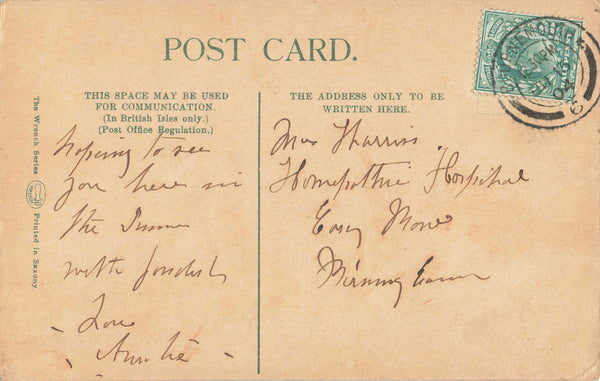 POST CARD.
THIS SPACE MAY BE USED
FOR COMMUNICATION.
(In British Isles only.)
(Post Office Regulation.)
THE ADDRESS ONLY TO BE
WRITTEN HERE.
The Wrench Series
Printed in Saxony.
hoping to see
you here in
the
with fondest
Love
Auntie
Harris
Homepathic Hospital
Easy Row
Birmingham